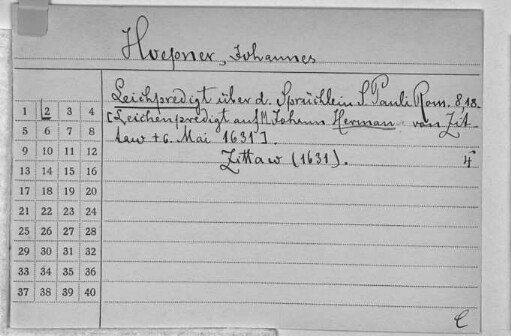 Hoepner, Johannes
Leichpredigt über d. Sprüchlein S. Pauli Rom. 8,18.
[Leichenpredigt auf M. Johann Herman von Zit-
taw + 6. Mai 1631].
Zittaw (1631). 4°
1 2 3 4
5 6 7 8
9 10 11 12
13 14 15 16
17 18 19 20
21 22 23 24
25 26 27 28
29 30 31 32
33 34 35 36
37 38 39 40